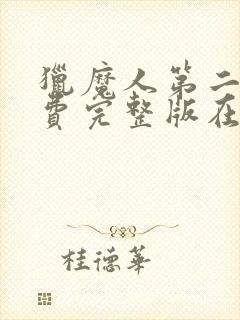 獵魔人第二
費完整版在
桂德華